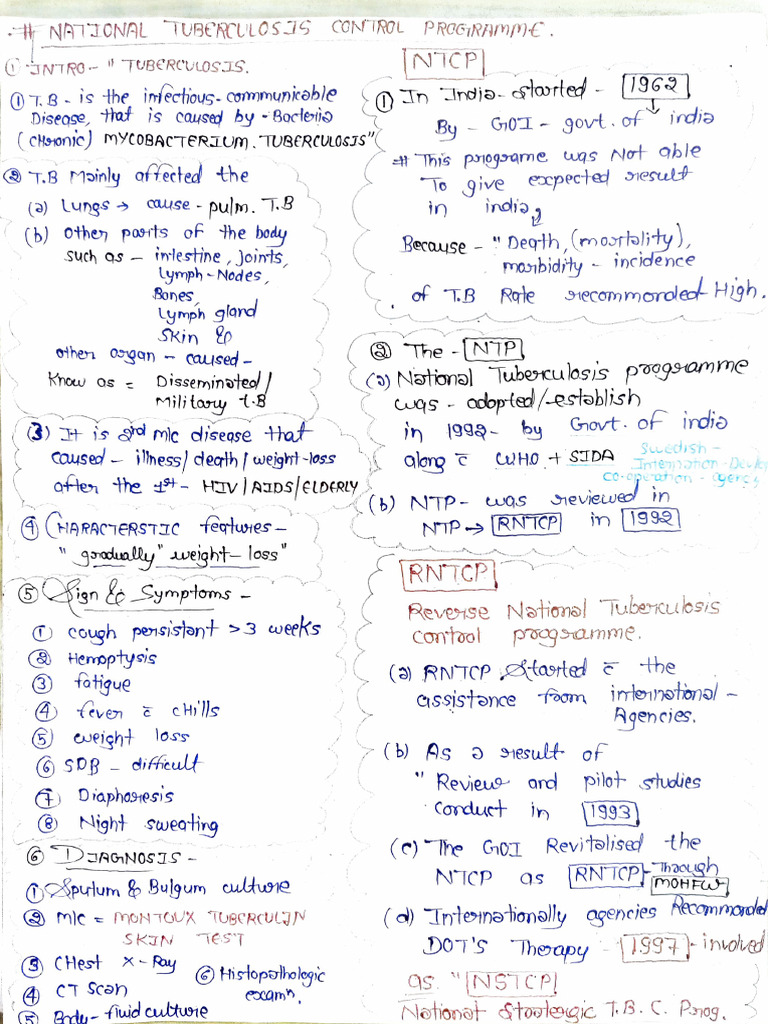 # NATIONAL TUBERCULOSIS CONTROL PROGRAMME.
① INTRO - " TUBERCULOSIS.
① T.B - is the infectious - communicable
Disease, that is caused by - Bacteria
(CHronic) MYCOBACTERIUM. TUBERCULOSIS"
② T.B Mainly affected the
(a) Lungs → cause - pulm. T.B
(b) Other parts of the body
such as - intestine, joints,
Lymph - Nodes,
Bones,
Lymph gland
Skin &
other organ - caused -
Know as = Disseminated /
Military t.B
③ It is 2nd M/c disease that
caused - illness/death/weight-loss
after the 1st - HIV/AIDS/ELDERLY
④ CHARACTERSTIC features -
"gradually" weight-loss"
⑤ Sign & Symptoms -
① cough persistant > 3 weeks
② Hemoptysis
③ fatigue
④ fever c̄ cHills
⑤ weight loss
⑥ SDB - difficult
⑦ Diaphoresis
⑧ Night sweating
⑥ DIAGNOSIS -
① Sputum & Bulgum culture
② M/c = MONTOUX TUBERCULIN
SKIN TEST
③ CHest X - Ray
④ CT Scan
⑥ Histopathologic
examn.
⑤ Body - fluid culture
NTCP
① In India - started - 1962
By - GOI - govt. of india
# This programe was Not able
To give expected result
in india
Because - " Death, (mortality),
morbidity - incidence
of T.B Rate recommonded High.
② The - NTP
(a) National Tuberculosis programme
was - adopted/establish
in 1992 - by Govt. of india
along c̄ W.H.O. + SIDA Swedish -
Internation - Develo
co-operation - agency
(b) NTP - was reviewed in
NTP → RNTCP in 1992
RNTCP
Reverse National Tuberculosis
control programme.
(a) RNTCP Started c̄ the
assistance from international -
Agencies.
(b) As a result of
" Review and pilot studies
conduct in 1993
(c) The GOI Revitalised the
NTCP as RNTCP - Through
MOHFW
(d) Internationally agencies Recommonded
DOT'S Therapy - 1997 - involved
as " NSTCP
National Strategic T.B.C. Prog.